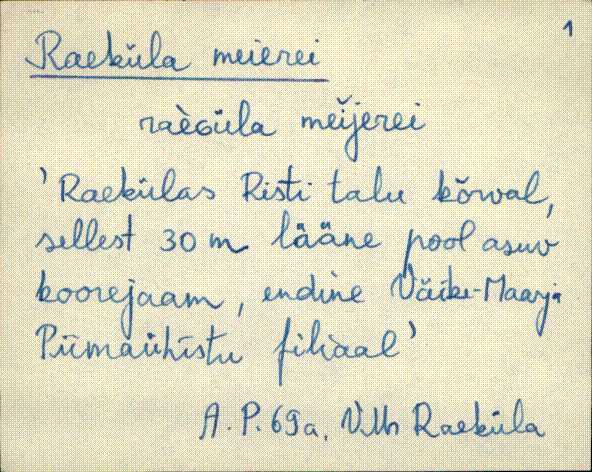 1
Raeküla meierei
raèɢüla meĭjerei
'Raekülas Risti talu kõrval,
sellest 30 m lääne pool asuv
koorejaam, endine Väike-Maarja
Piimaühistu filiaal'
A. P. 69a, V.Mr Raeküla